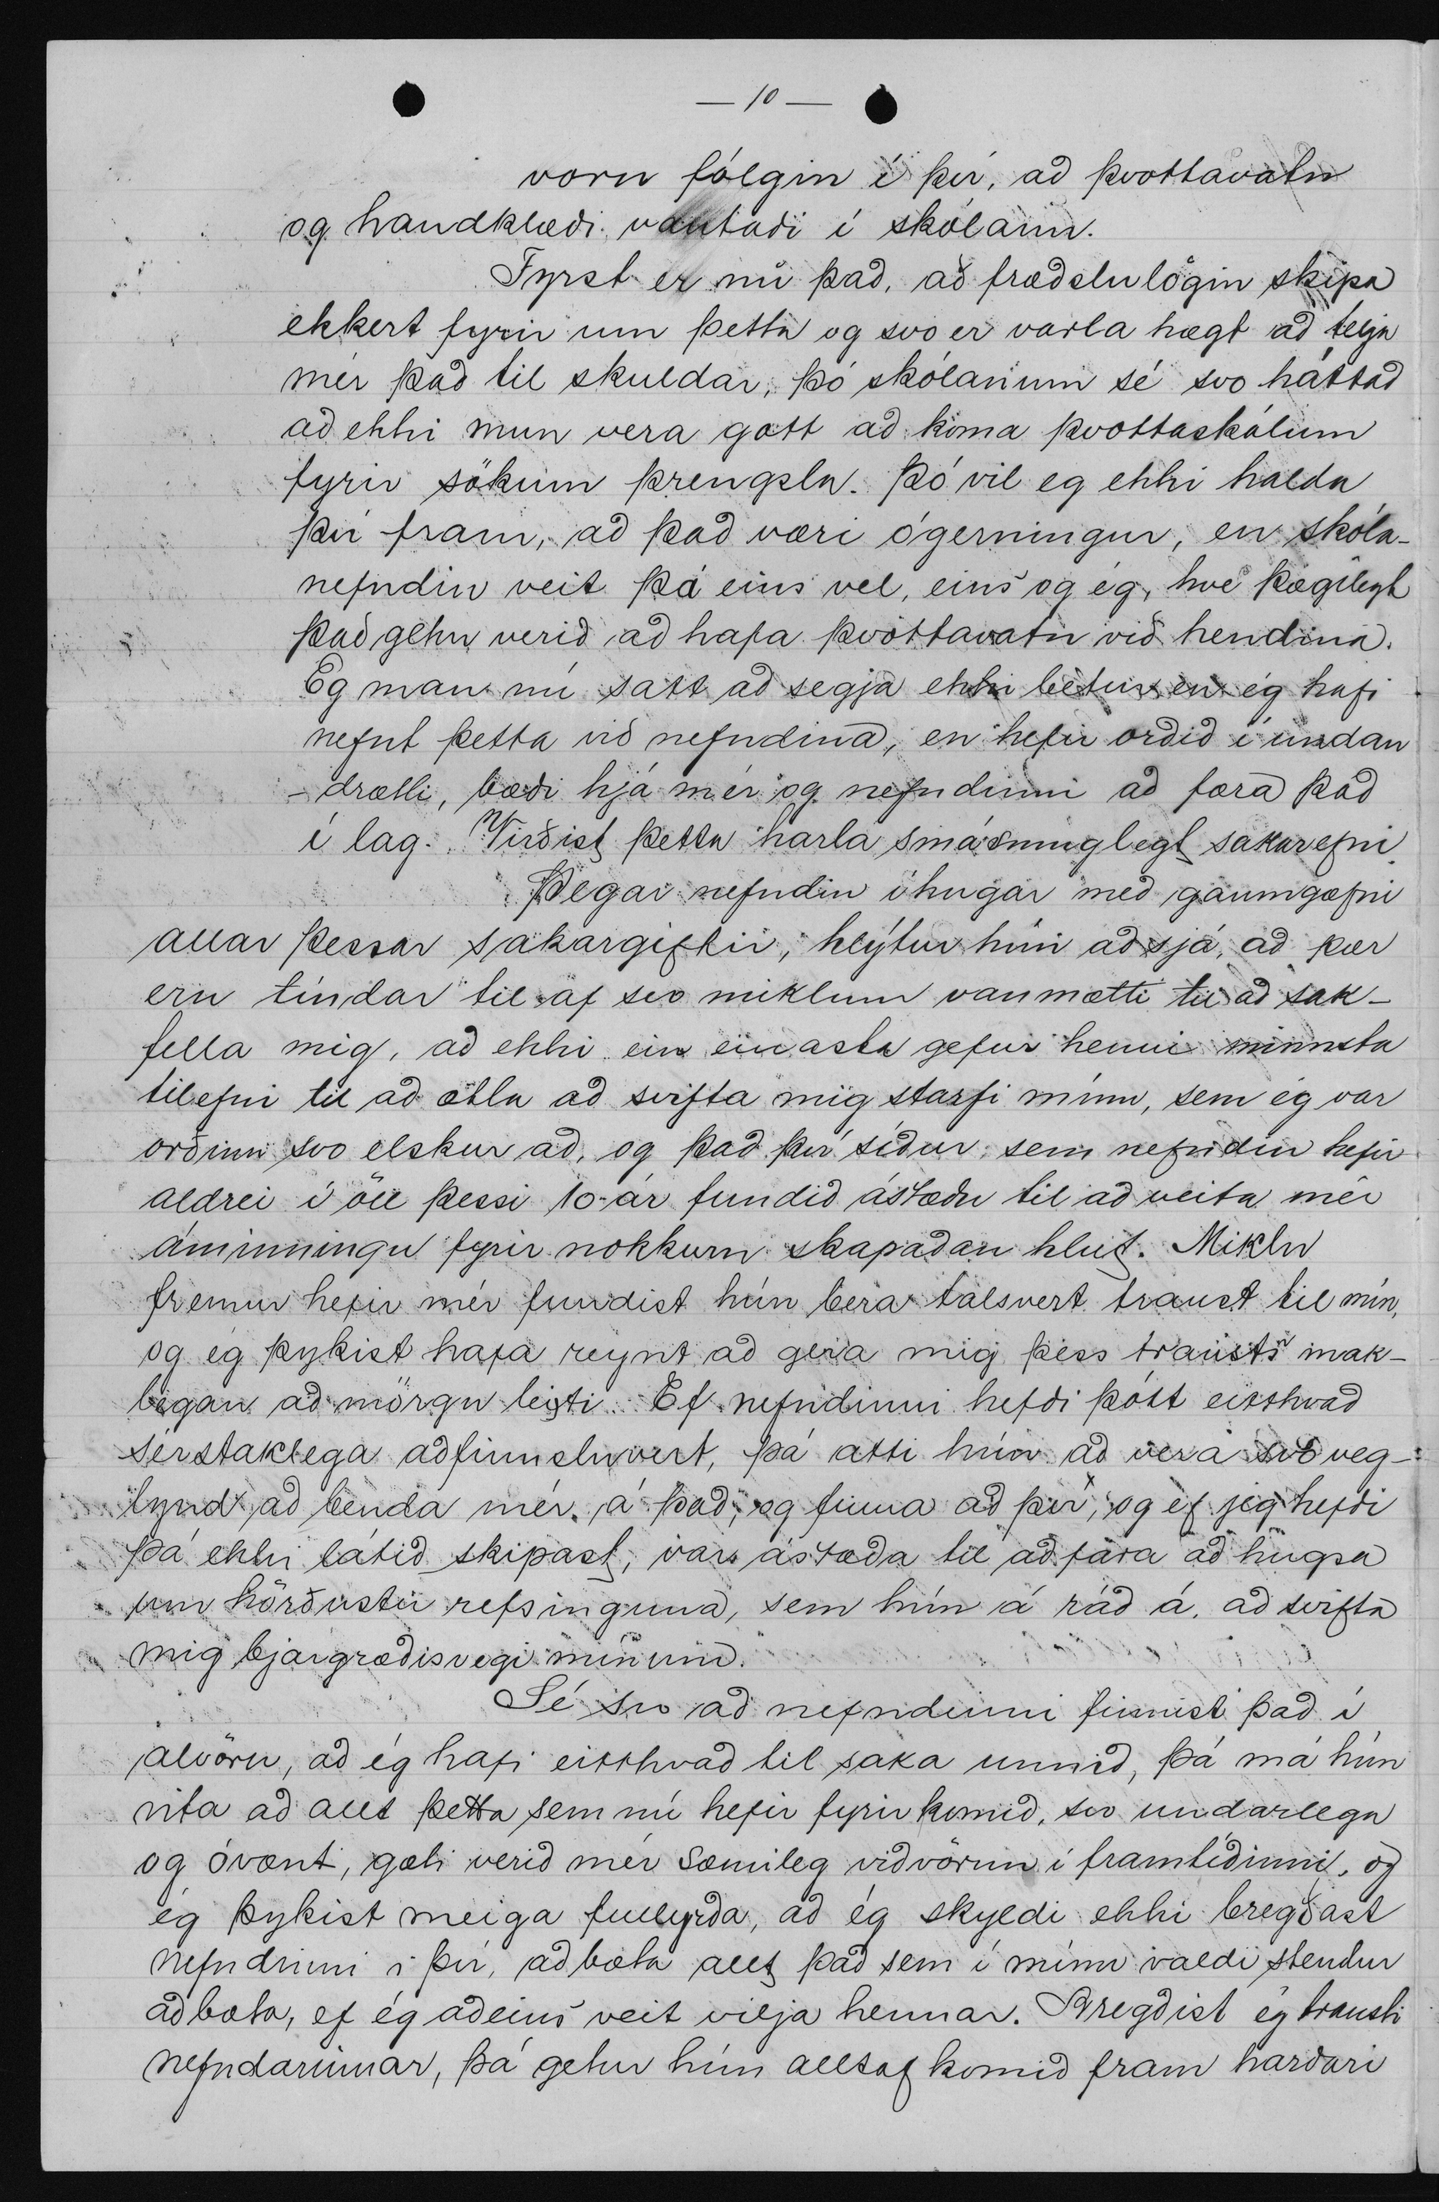 — 10 —
vorn fólgin í því, að þvottavatn
og handklæði vantaði í skólann.
Fyrst er nú það, að fræðslulögin skipa
ekkert fyrir um þetta og svo er varla hægt að telja
mér það til skuldar, þó skólanum sé svo háttað
að ekki mun vera gott að koma þvottaskálum
fyrir sökum þrengsla. Þó vil eg ekki halda
því fram, að það væri ógerningur, en skóla-
nefndin veit þá eins vel, eins og ég, hve þægilegt
það getur verið að hafa þvottavatn við hendina.
Eg man nú satt að segja ekki betur en ég hafi
nefnt þetta við nefndina, en hefir orðið í undan
- drætti, bæði hjá mér og nefndinni að færa það
í lag. Virðist þetta harla smámunglegt sakarefni.
Þegar nefndin íhugar með gaumgæfni
allar þessar sakargiftir, hlýtur hún að sjá, að þær
eru tíndar til af svo miklum vanmætti til að sak-
fella mig, að ekki ein einasta gefur henni minnsta
tilefni til að ætla að svifta mig starfi mínu, sem ég var
orðinn svo elskur að, og það því síður sem nefndin hefir
aldrei í öll þessi 10 ár fundið ástæðu til að veita mér
áminningu fyrir nokkurn skapaðan hlut. Miklu
fremur hefir mér fundist hún bera talsvert traust til mín,
og ég þykist hafa reynt að gera mig þess trausts mak-
legan að mörgu leyti. Ef nefndinni hefði þótt eitthvað
sérstaklega aðfinnsluvert, þá átti hún að vera svo veg-
lynd að benda mér á það, og finna að því, og ef jeg hefði
þá ekki látið skipast, var ástæða til að fara að hugsa
um hörðustu refsinguna, sem hún á ráð á, að svifta
mig bjargræðisvegi mínum.
Sé svo að nefndinni finnist það í
alvöru, að ég hafi eitthvað til saka unnið, þá má hún
vita að allt þetta sem nú hefir fyrir komið, svo undarlega
og óvænt, gæti verið mér sæmileg viðvörun í framtíðinni, og
ég þykist meiga fullyrða, að ég skyldi ekki bregðast
nefndinni í því, að bæta allt það sem í mínu valdi stendur
að bæta, ef ég aðeins veit vilja hennar. Bregðist ég trausti
nefndarinnar, þá getur hún alltaf komið fram harðari